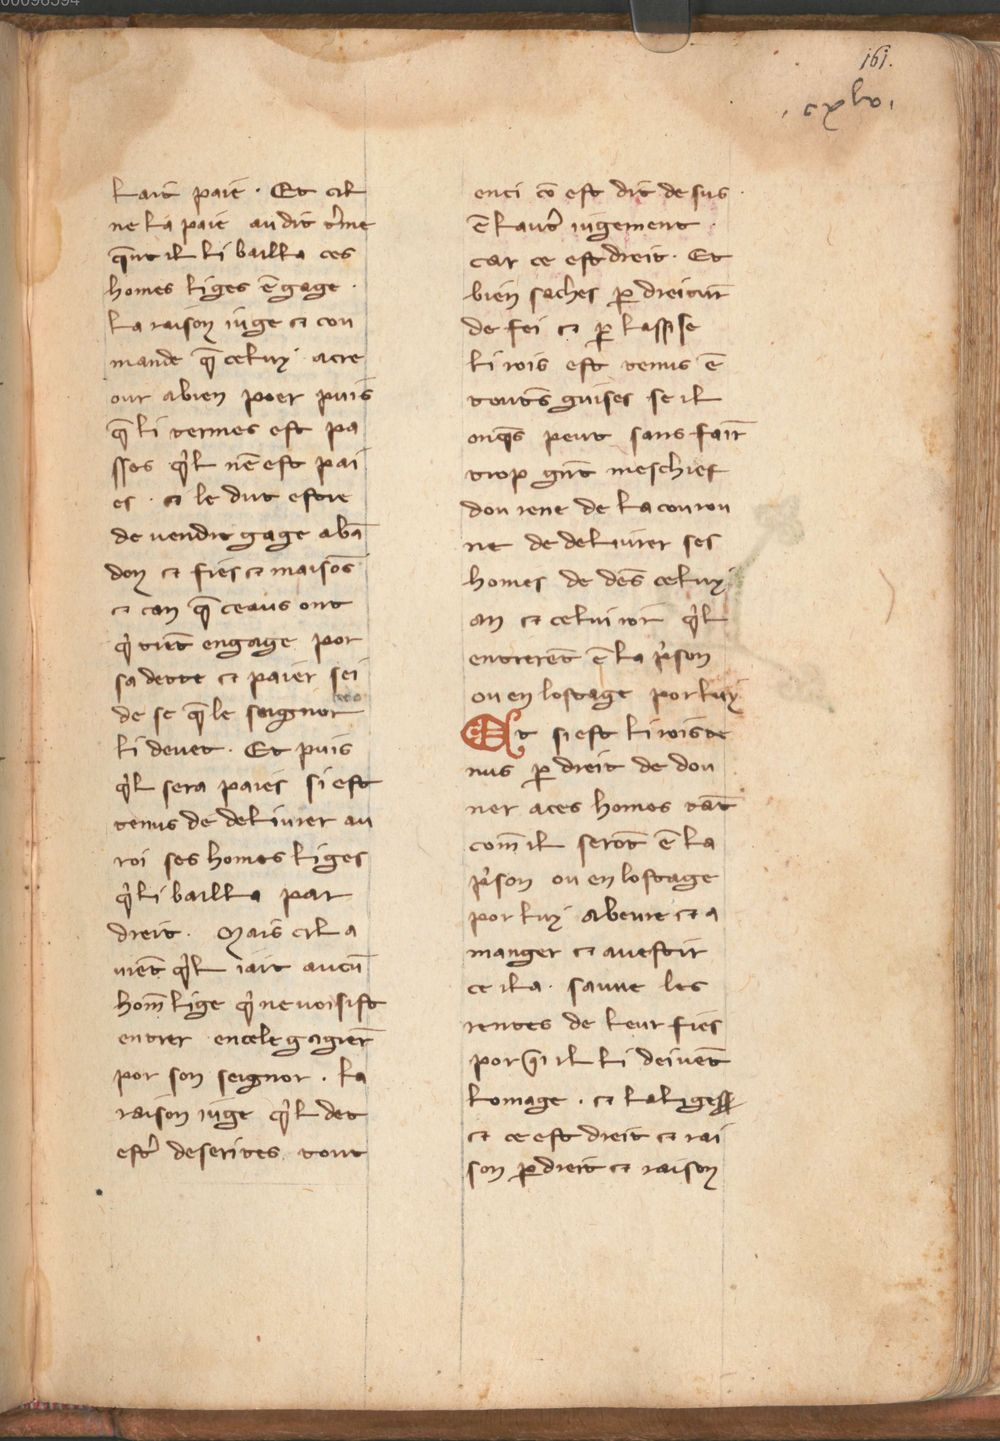 161.
. cxlv .
lait paie . Et cil
ne la paie au dit t'me
q̄nt il li bailla ces
homes liges ē gage .
la raison iuge et con
mande q̄ celuy acre
our a bien poer puis
q̄ li termes est pa
sses q'l nē est pai
es . et le dut estre
de vendre gage abā
don et fiés et maisōs
et can q̄ ceaus ont
por
sa dette et paier sei
de se q̄ le seignor
li devet . Et puis
q'l sera paies si est
tenus de delivrer au
roi ses homes liges
q'li bailla par
dreit . Mais cil a
viēt q'l iait aucū
hom̄ lige q' ne vosist
entrer en cele gagier̄
por son seignor . la
raison iuge q'l det
est' deserites tout
enci cō est dit desus .
ē laut' iugement .
car ce est dreit . Et
bien saches p̱ dreitur̄
de fei et p̱ lassise
li rois est tenus ē
toutēs guises se il
onq̄s peut sans fair̄
trop gnt̄ meschief
dou rene de la couron
ne de delivrer ses
homes de dēs celuy
an et celui ior̄ q'l
entrerēt ē la p'son
ou en lostage por luy
Et si est li rois te
nus p̱ dreit de don
ner a ces homes tāt
com̄ il serōt ē la
p'son ou en lostage
por luy a beure et a
manger et a vestir
ce il a . sauve les
rentes de leur fiés
por q̄i il li deivēt
lomage . et la ligesse
et ce est dreit et rai
son p̱ dreit et raison